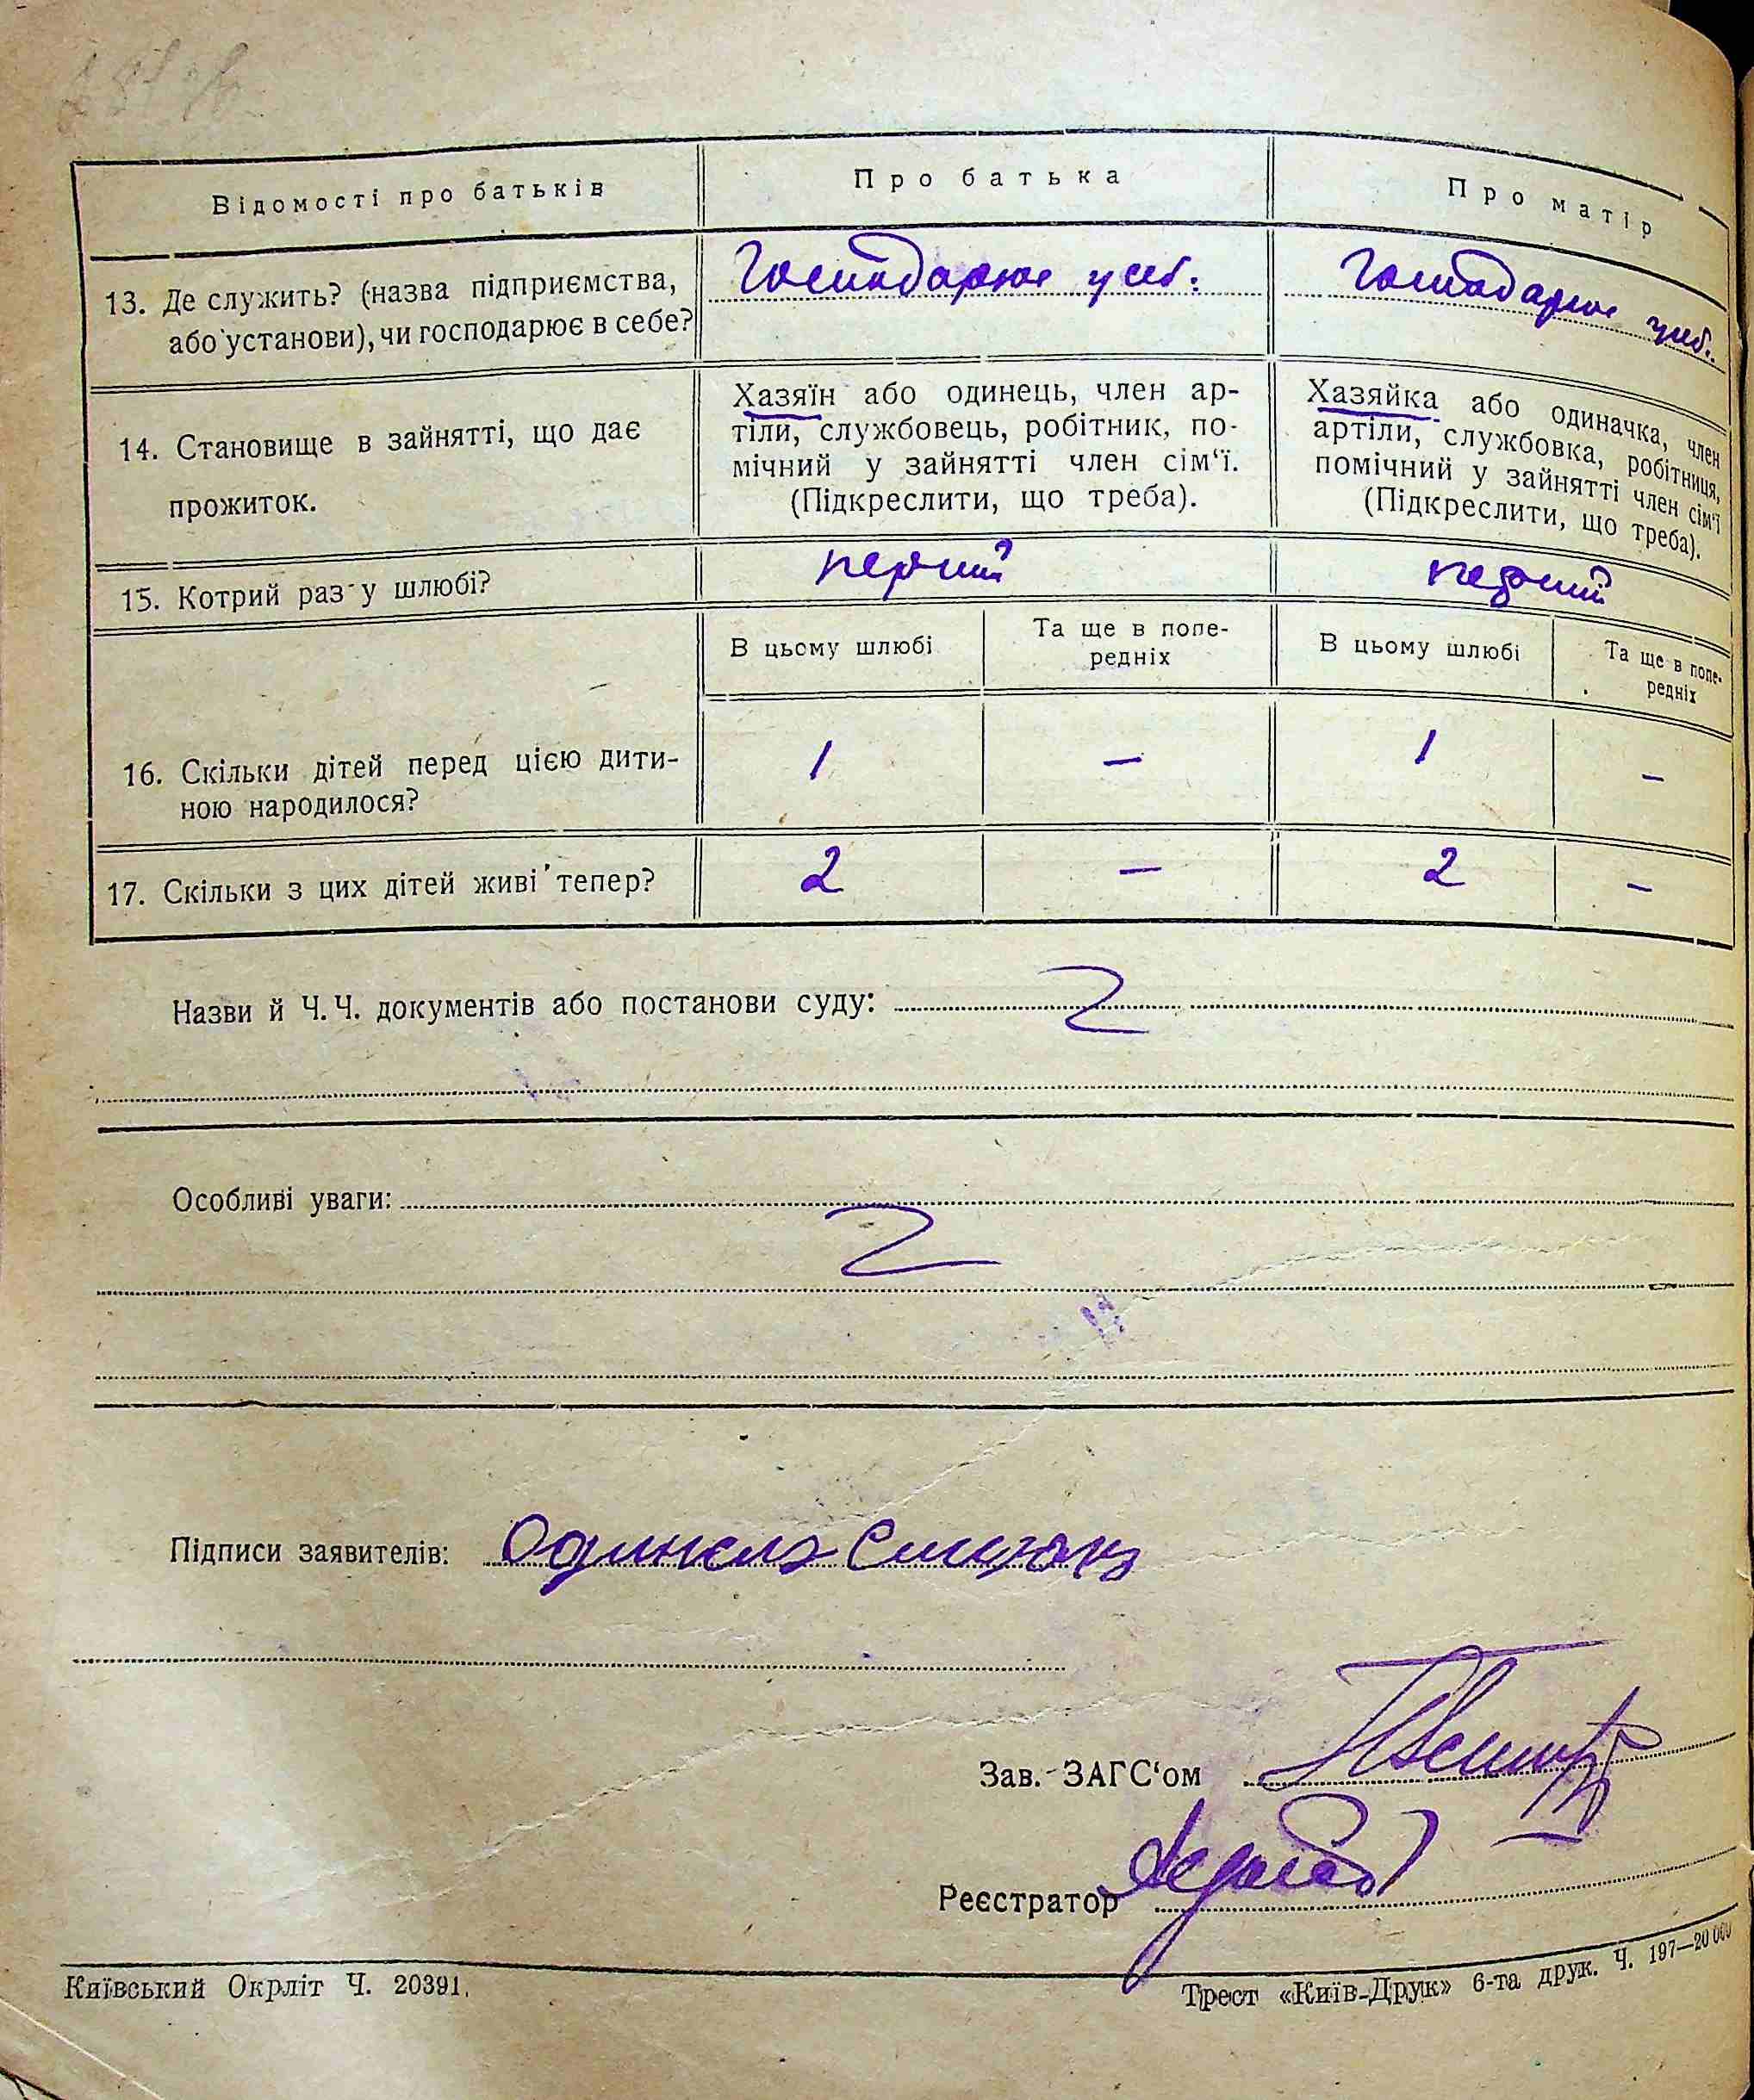 Відомості про батьків
Про батька
Про матір
13. Де служить? (назва підприємства,
або установи), чи господарює в себе?
Господарює у себ.
Господарює у себ.
14. Становище в зайнятті, що дає
прожиток.
Хазяїн або одинець, член ар-
тіли, службовець, робітник, по-
мічний у зайнятті член сім‘ї.
(Підкреслити, що треба).
Хазяйка або одиначка, член
артіли, службовка, робітниця,
помічний у зайнятті член сім‘ї
(Підкреслити, що треба).
15. Котрий раз у шлюбі?
перший
перший
В цьому шлюбі
Та ще в попе-
редніх
В цьому шлюбі
Та ще в попе-
редніх
16. Скільки дітей перед цією дити-
ною народилося?
1 — 1 —
17. Скільки з цих дітей живі тепер?
2 — 2 —
Назви й Ч. Ч. документів або постанови суду:
Особливі уваги:
Підписи заявителів:
Зав. ЗАГС‘ом
Реєстратор
Київський Окрліт Ч. 20391.
Трест «Київ-Друк» 6-та друк. Ч. 197—20 000